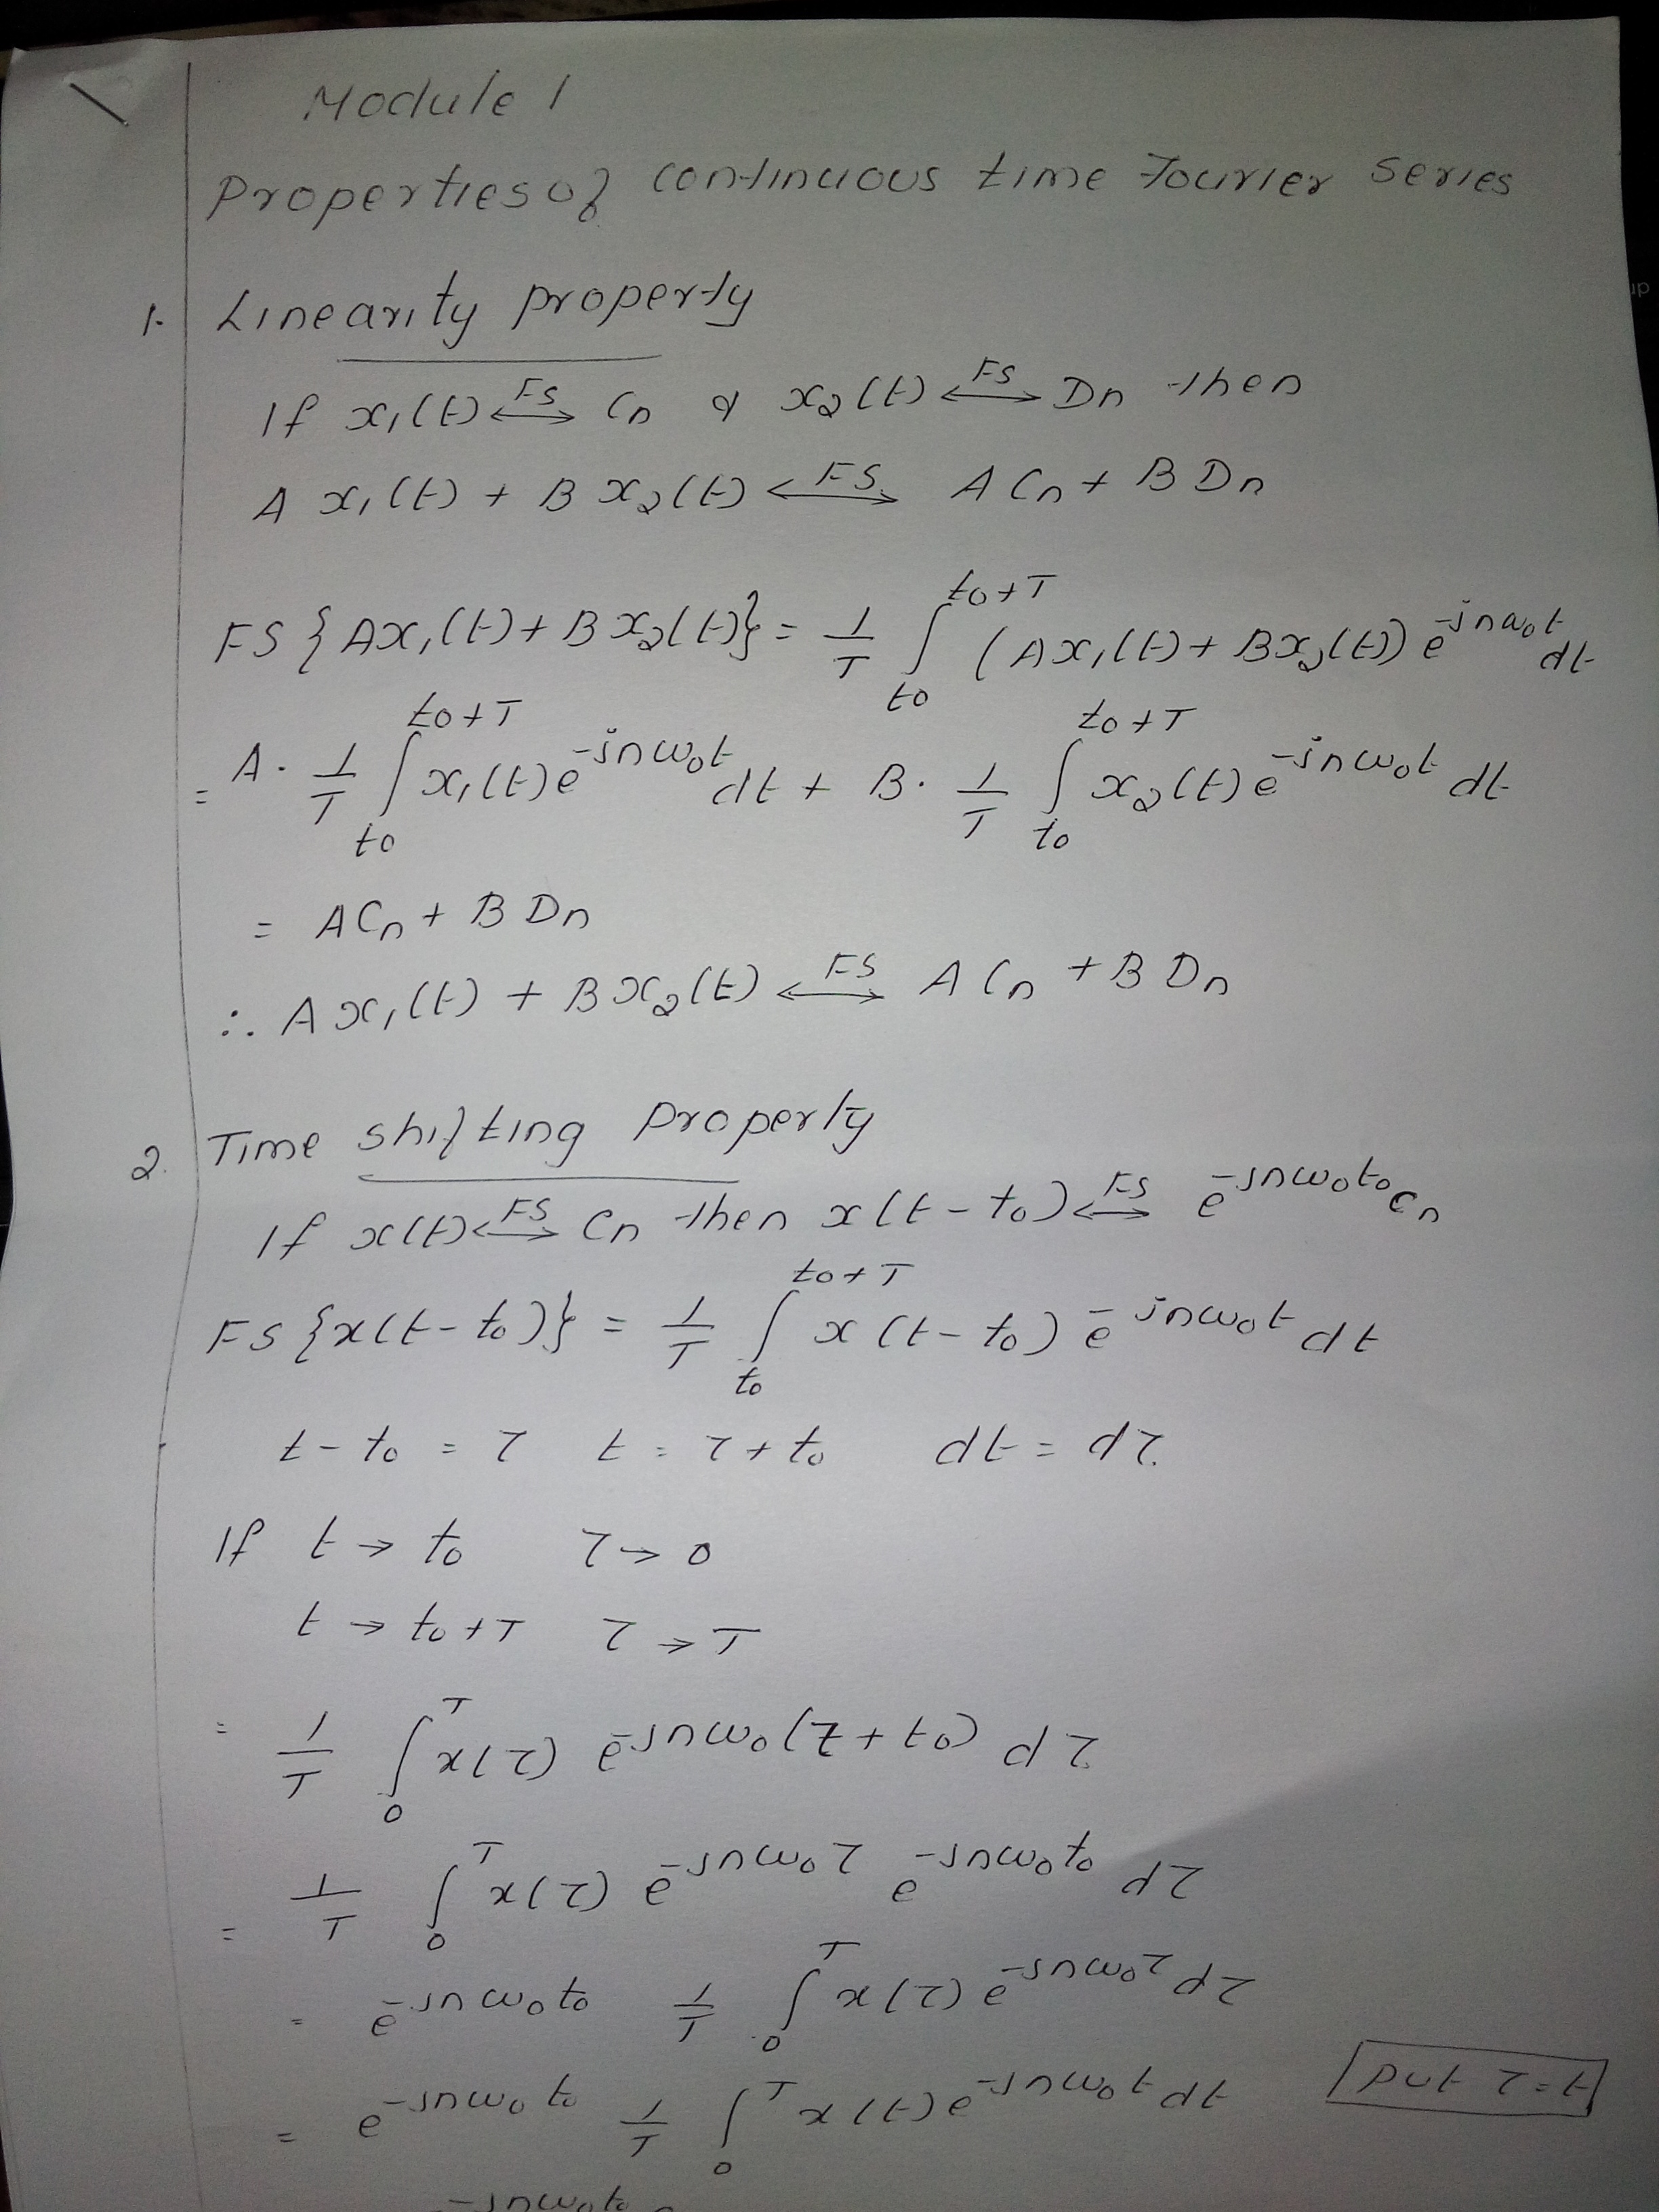 Module 1
Properties of continuous time Fourier series
1. Linearity property
If x₁(t) ⟷FS Cn & x₂(t) ⟷FS Dn then
A x₁(t) + B x₂(t) ⟷FS A Cn + B Dn
FS {Ax₁(t) + B x₂(t)} = 1/T ∫_{t0}^{t0+T} (Ax₁(t) + Bx₂(t)) e^{-jnω₀t} dt
= A. 1/T ∫_{t0}^{t0+T} x₁(t) e^{-jnω₀t} dt + B. 1/T ∫_{t0}^{t0+T} x₂(t) e^{-jnω₀t} dt
= A Cn + B Dn
∴ A x₁(t) + B x₂(t) ⟷FS A Cn + B Dn
2. Time shifting property
If x(t) ⟷FS Cn then x(t - t₀) ⟷FS e^{-jnω₀t₀} Cn
FS {x(t - t₀)} = 1/T ∫_{t0}^{t0+T} x(t - t₀) e^{-jnω₀t} dt
t - t₀ = τ t = τ + t₀ dt = dτ.
If t → t₀ τ → 0
t → t₀ + T τ → T
= 1/T ∫_{0}^{T} x(τ) e^{-jnω₀(τ + t₀)} dτ
= 1/T ∫_{0}^{T} x(τ) e^{-jnω₀τ} e^{-jnω₀t₀} dτ
= e^{-jnω₀t₀} 1/T ∫_{0}^{T} x(τ) e^{-jnω₀τ} dτ
= e^{-jnω₀t₀} 1/T ∫_{0}^{T} x(t) e^{-jnω₀t} dt put τ = t
-jnω₀t₀
up